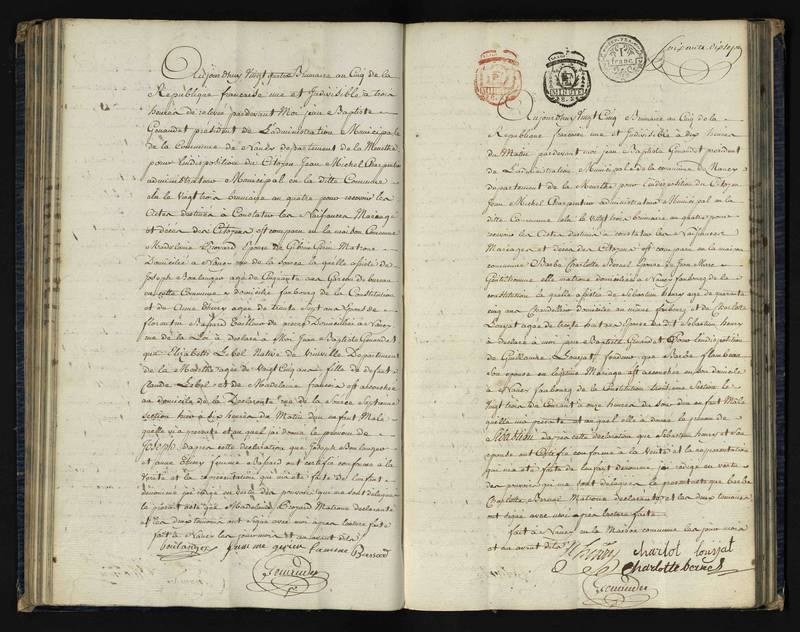 Aujourd'huy Vingt quatre Brumaire an Cinq de la
Republique francoise une et Indivisible a trois
heures de relevée pardevant Moi jean Baptiste
president de L'administration Municipale
de la Commune de Nancy departement de la Meurthe
pour L'indisposition du Citoyen Jean Michel
administrateur Municipal en la ditte Commune
elu le Vingt trois brumaire an quatre pour recevoir les
Actes destinés a Constater les Naissances Mariages
et décès des Citoyens est comparu en la maison Commune
Madelaine Epouse de Matrone
Domiciliée a Nancy rue de la source la quelle assisté de
Joseph Boulanger agé de Cinquante ans Garcon de bureau
en cette Commune y domicilié faubourg de la Constitution
et de Anne thiery agée de trente Sept ans Epouse de
florentin Bassard Tailleur de pierres Domiciliée a Nancy
rue de la Loi a déclaré a Moi Jean Baptiste
que Elizabeth Lebel Native de Departement
de la Moselle agée de Vingt Cinq ans fille de defunt
Claude Lebel et de Madelaine francois est accouchée
au domicile de la Declarante rue de la Source Septieme
Section hier a dix heures du Matin d'un enfant Male
quelle m'a presenté et au quel j'ai donné le prénom de
Joseph dapres cette déclaration que Joseph Boulanger
et anne thiery femme Bassard ont certifié conforme à la
Verité et la représentation qui m'a été faite de l'enfant
denommé j'ai rédigé en vertu des pouvoirs qui me sont délégués
le présent acte que Madelaine Matrone declarante
et les deux temoins ont signé avec moi apres lecture faite
fait à Nancy les jour mois et an avant dits
boulanger femme Bassard

MINUTE
MINUTE
Aujourd'huy Vingt Cinq Brumaire an Cinq de la
Republique francoise une et Indivisible à dix heures
du Matin pardevant moi jean Baptiste president
de L'administration Municipale de la commune de Nancy
departement de la Meurthe pour L'indisposition du Citoyen
Jean Michel administrateur Municipal en la
ditte Commune elu le vingt trois brumaire an quatre pour
recevoir les Actes destinés a constater les Naissances
Mariages et décès des Citoyens est comparu en la maison
commune Barbe Charlotte Epouse de Jean Marc
elle matrone domiciliée a Nancy faubourg de la
constitution la quelle assistée de Sébastien henry agé de quarante
cinq ans Chandellier domicilié au même faubourg et de Charlotte
Louzat agée de trente huit ans Epouse du dit Sébastien henry
a déclaré à moi jean Baptiste Pour L'indisposition
de Guillaume Louzat fondeur que Barbe
Son epouse en legitime Mariage est accouchée en son domicile
a Nancy faubourg de la Constitution Section le
Vingt trois du Courant à onze heures du soir d'un enfant Mâle
quelle m'a présenté et au quel elle a donné le prénom de
Sébastien dapres cette déclaration que Sébastien henry et Son
epouse ont Certifié conforme à la Verité et la représentation
qui m'a été faite de l'enfant denommé j'ai rédigé en vertu
des pouvoirs qui me sont délégués le présent acte que barbe
Charlotte Matrone déclarante et les deux temoins
ont signé avec moi apres lecture faite
fait à Nancy en la Maison commune les jour mois
et an avant dits henry charlot louzat
Charlotte